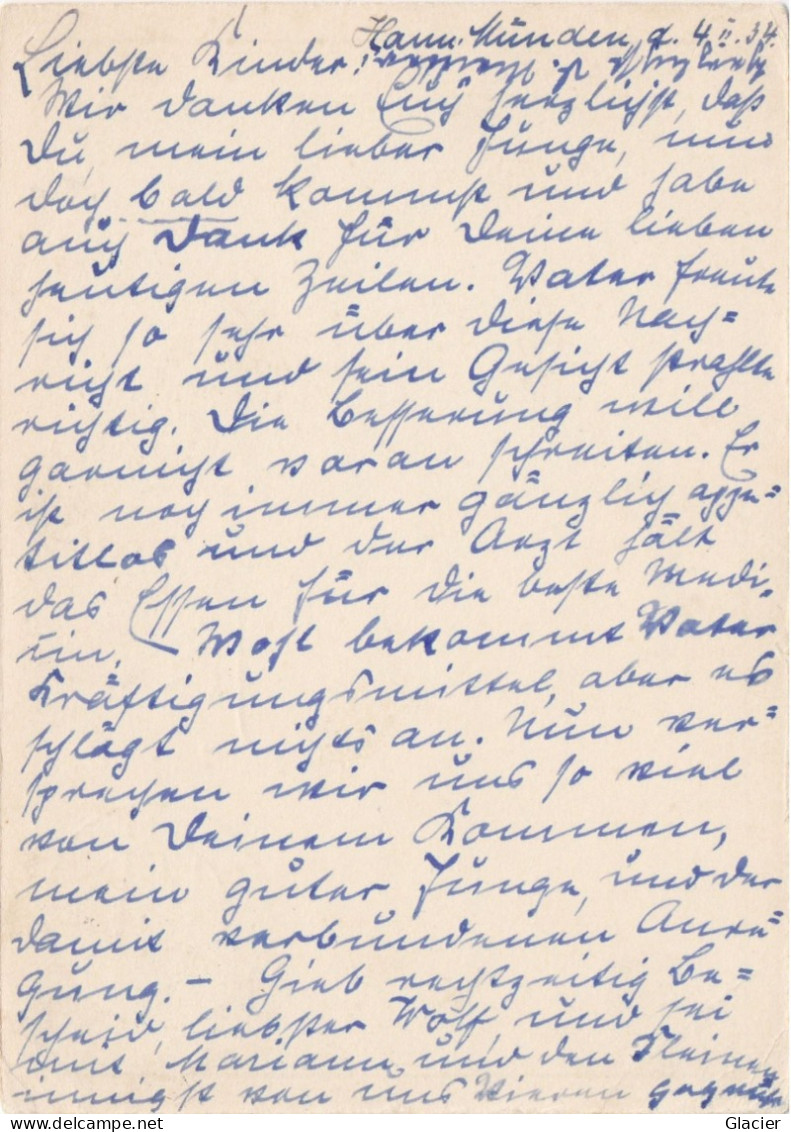 Hann. Münden, d. 4. II. 34.
Liebste Kinder!
Wir danken Euch herzlichst, daß
Du, mein lieber Junge, nun
doch bald kommst und habe
auch Dank für Deine lieben
heutigen Zeilen. Vater freute
sich so sehr über diese Nach=
richt und sein Gesicht strahlte
richtig. Die Besserung will
garnicht voran schreiten. Er
ist noch immer gänzlich appe=
titlos und der Arzt hält
das Essen für die beste Medi=
zin. – Wohl bekommt Vater
Kräftigungsmittel, aber es
schlägt nichts an. Nun ver=
sprechen wir uns so viel
von Deinem Kommen,
mein guter Junge, und der
damit verbundenen Anre=
gung. – Gieb rechtzeitig Be=
scheid, liebster Wolf, und sei
mit Mariann und den Kleinen
innigst von uns Vieren gegrüßt
Glacier